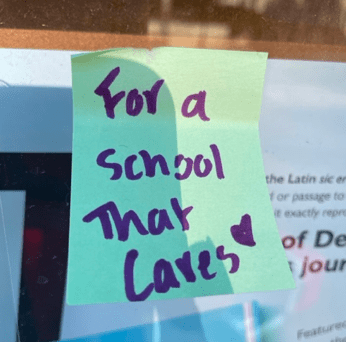 For a
School
That
Cares
the Latin sic
or passage to
it exactly repr
of De
jour
Featured